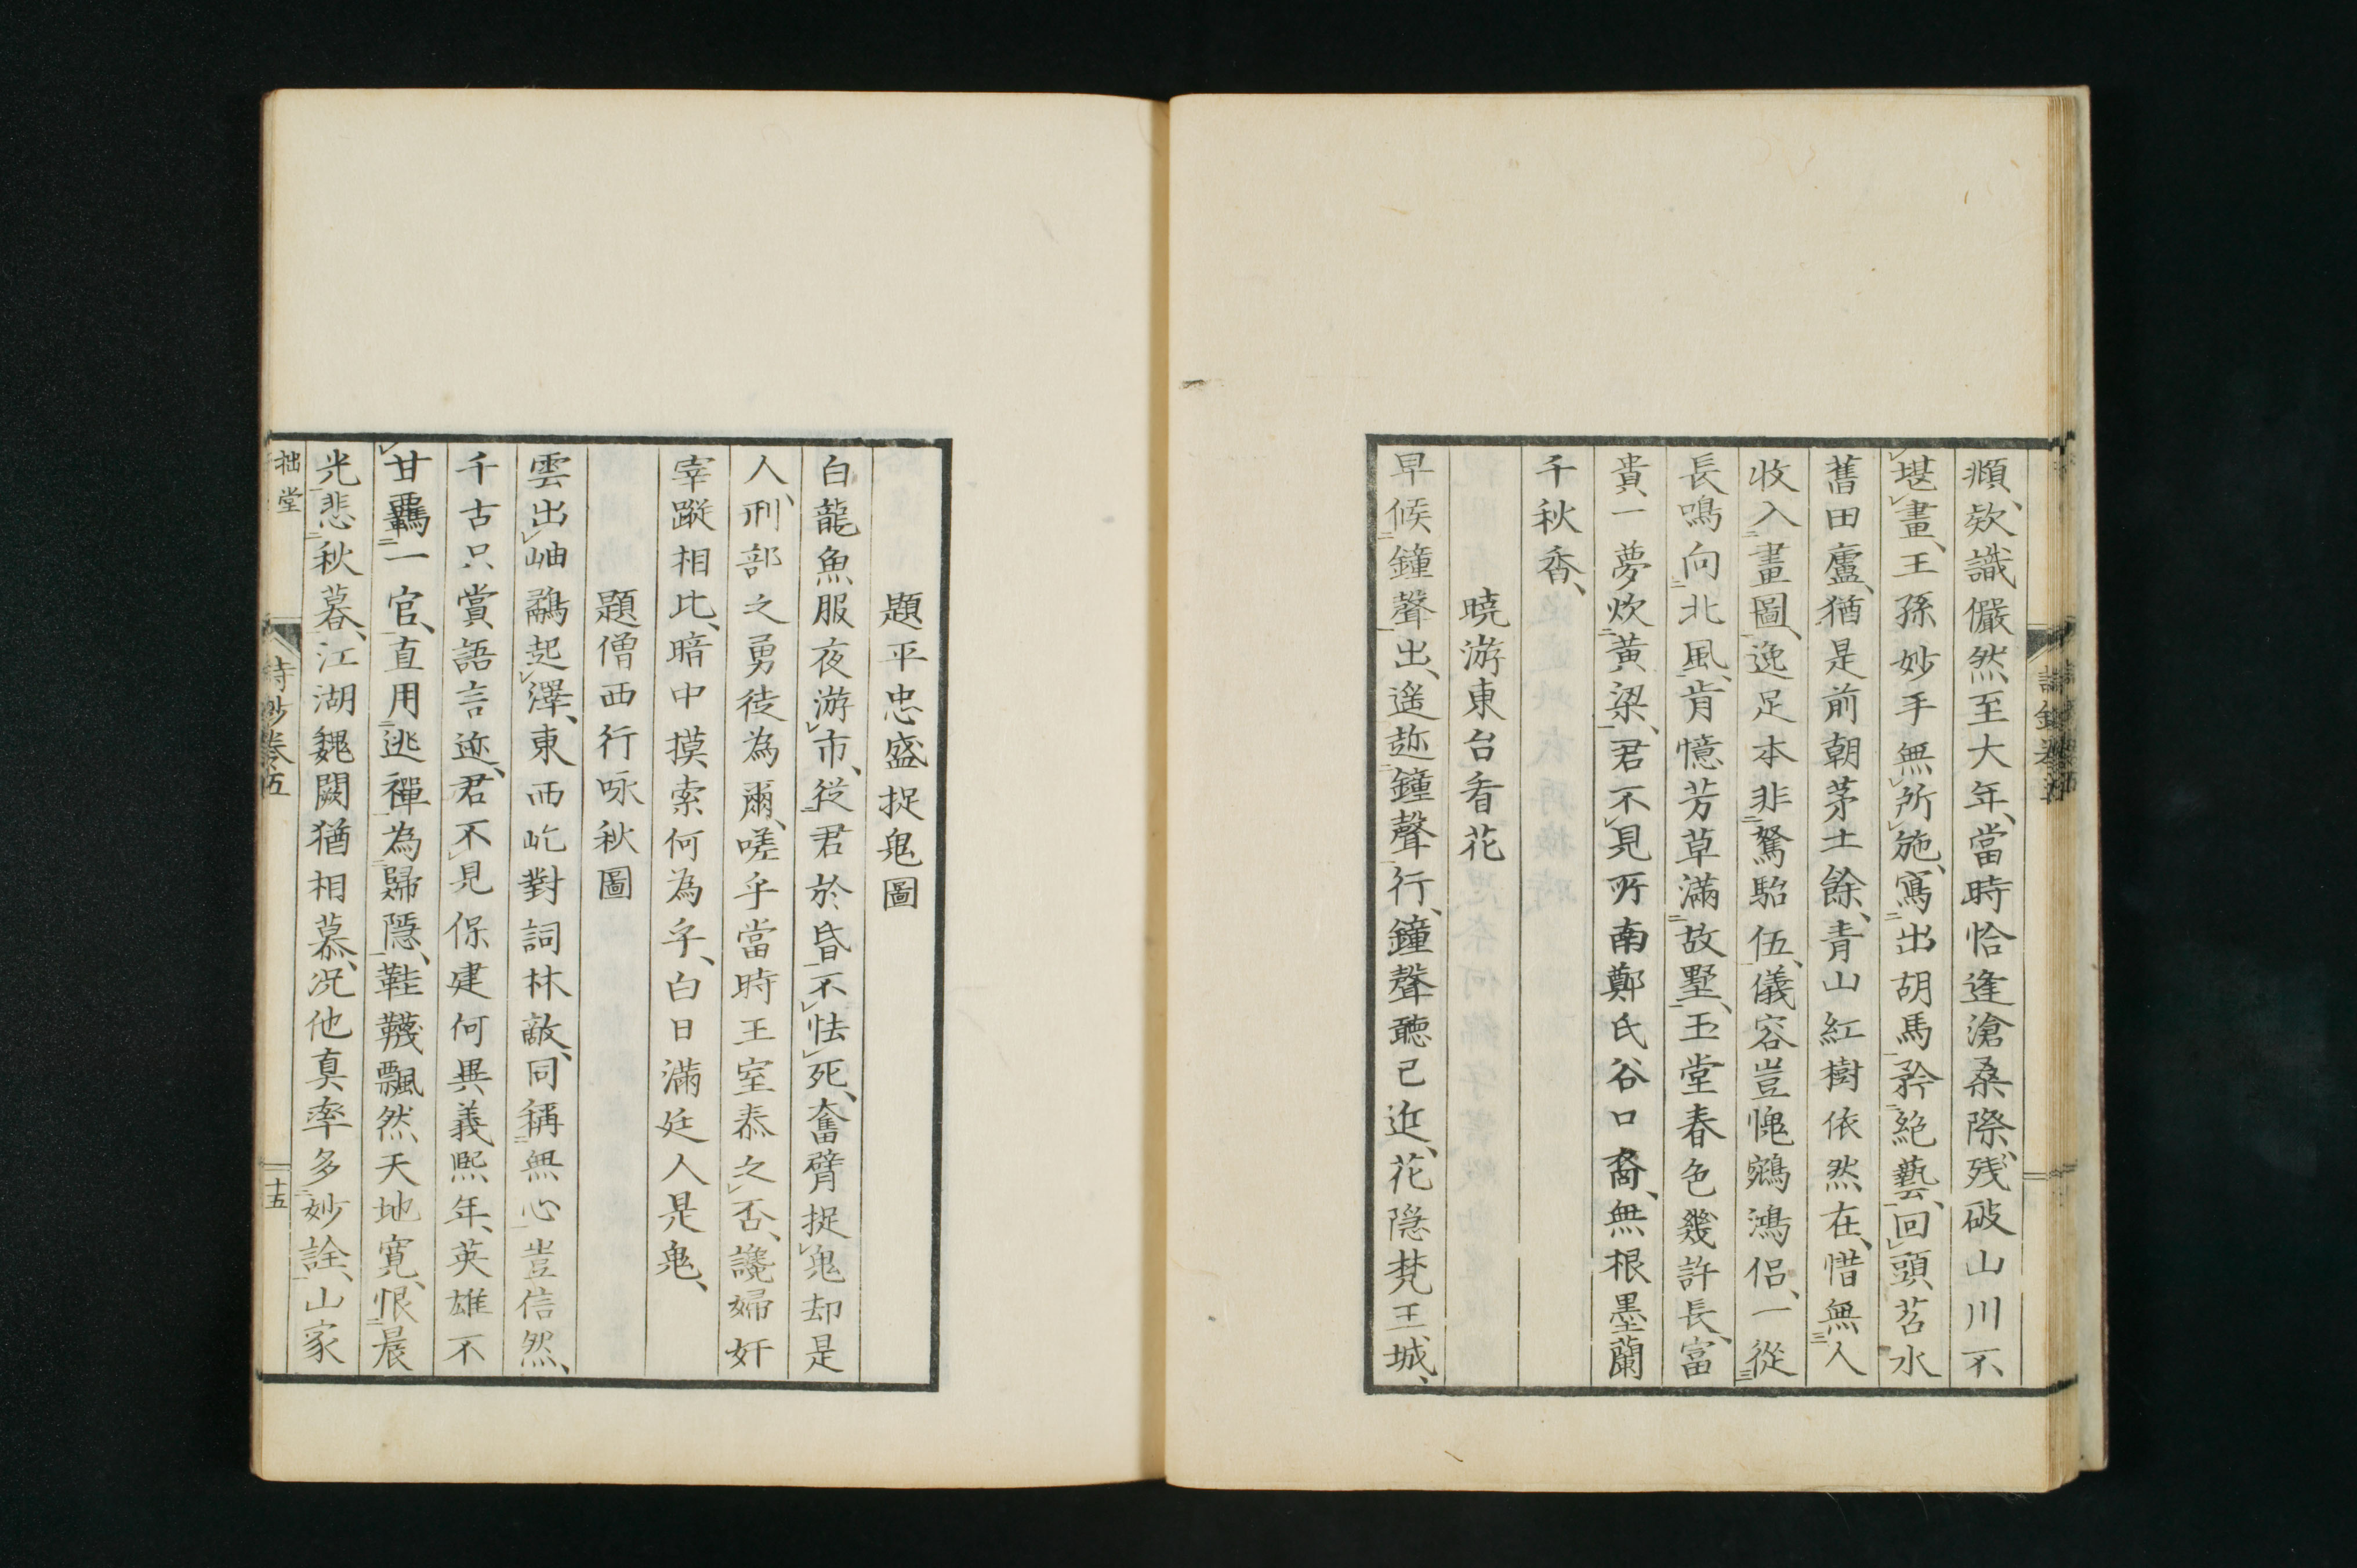 頫欵識儼然至大年、當時恰逢滄桑際、残破山川不
堪畫、王孫妙手無所施、寫出胡馬矜絶藝、回頭苕水
舊田廬、猶是前朝茅土餘、青山紅樹依然在、惜無人
收入畫圖、逸足本非駑駘伍、儀容豈愧鵷鴻侶、一從
長鳴向北風、肯憶芳草滿故墅、玉堂春色幾許長、富
貴一夢炊黃粱、君不見所南鄭氏谷口裔、無根墨蘭
千秋香、
曉游東台看花
早候鐘聲出、遥趂鐘聲行、鐘聲聴已近、花隠梵王城、
題平忠盛捉鬼圖
白龍魚服夜游市、從君於昏不怯死、奮臂捉鬼却是
人、刑部之勇徒為爾、嗟乎當時王室泰之否、讒婦奸
宰蹤相比、暗中摸索何為乎、白日滿廷人是鬼、
題僧西行咏秋圖
雲出岫鷸起澤、東西屹對詞林敵、同稱無心豈信然、
千古只賞語言迹、君不見保建何異義熙年、英雄不
甘羈一官、直用逃禪為歸隱、鞋韈飄然天地寛、恨晨
光悲秋暮、江湖魏闕猶相慕、况他真率多妙詮、山家
拙堂
詩鈔卷五
十五